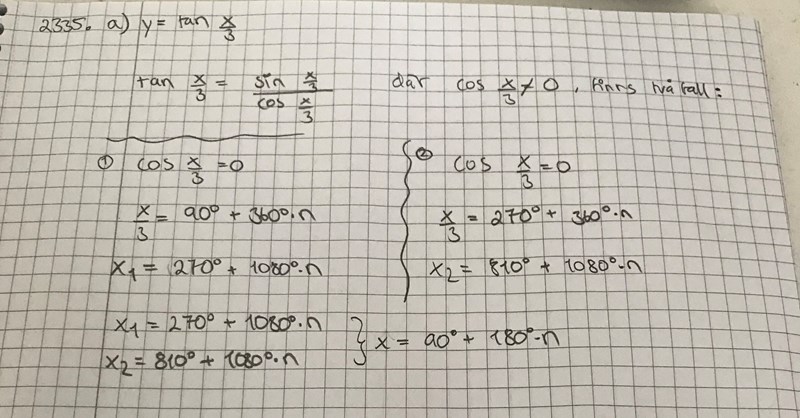 2335. a) y = tan x/3
tan x/3 = sin x/3 / cos x/3 där cos x/3 ≠ 0, finns två fall:
① cos x/3 = 0
x/3 = 90° + 360°·n
x₁ = 270° + 1080°·n
② cos x/3 = 0
x/3 = 270° + 360°·n
x₂ = 810° + 1080°·n
x₁ = 270° + 1080°·n
x₂ = 810° + 1080°·n
} x = 90° + 180°·n